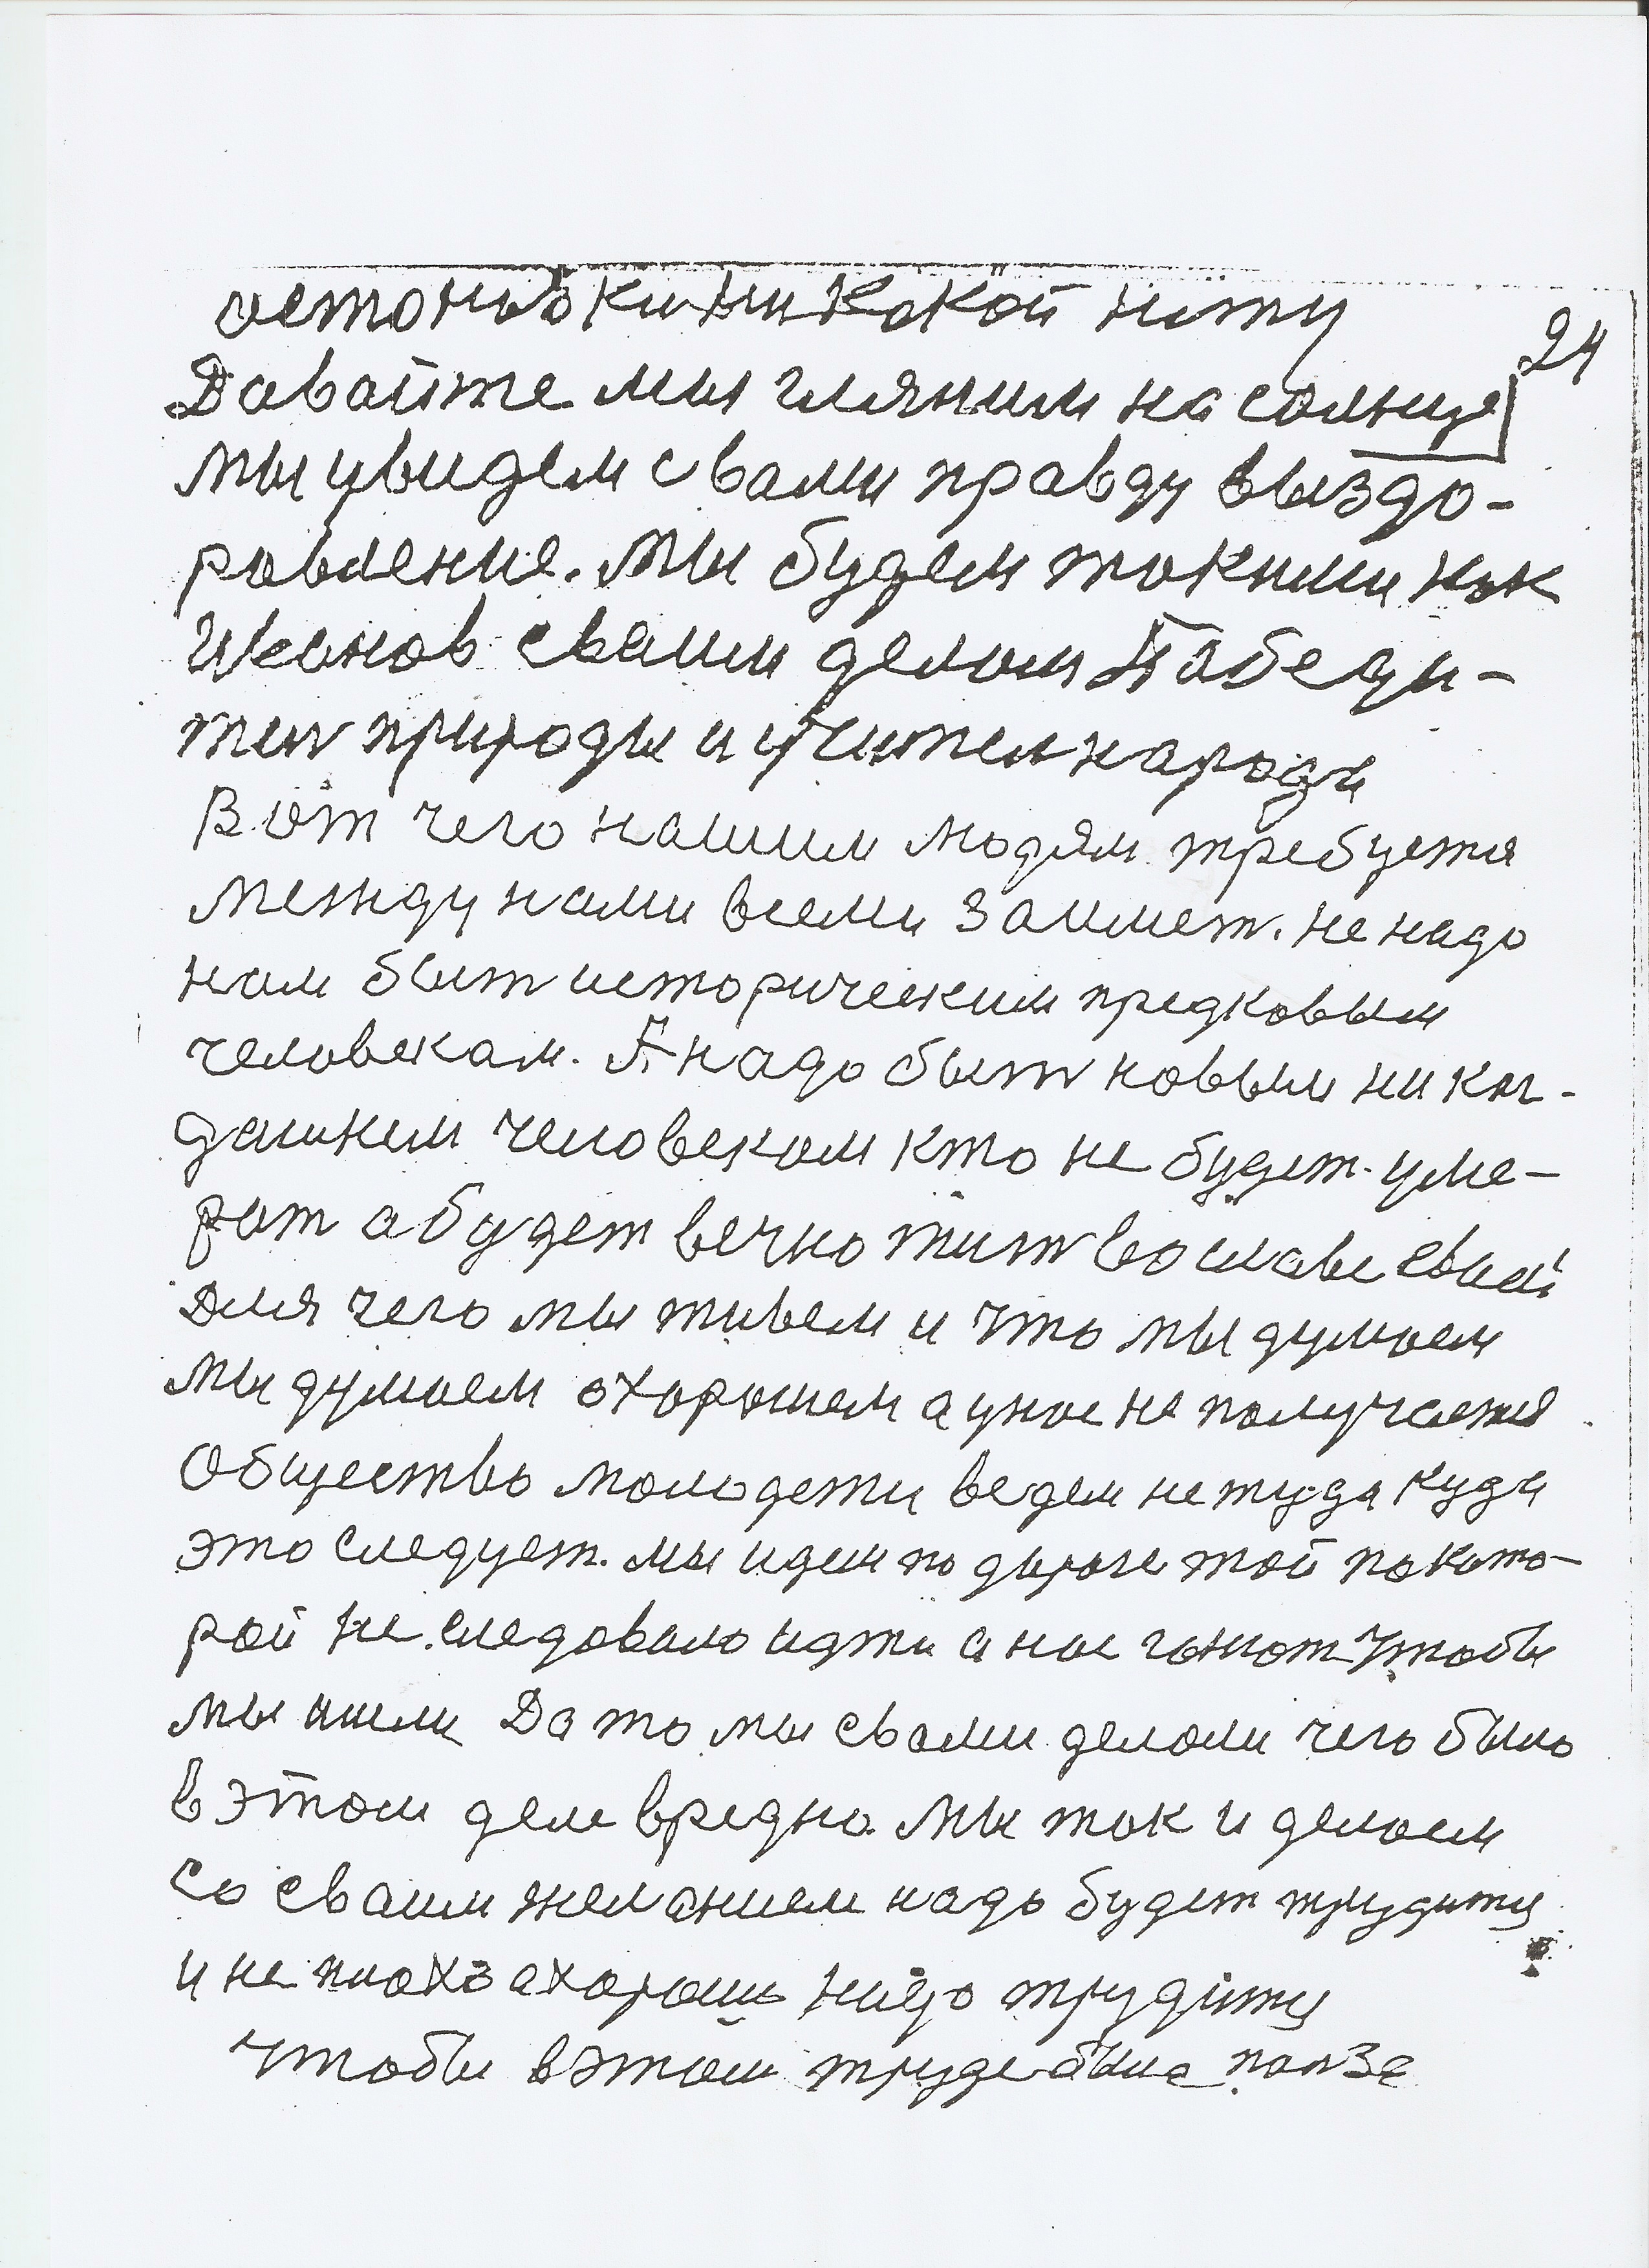 остоновки ни какой нету
24
Давайте мы гляним на солнце
мы увидем свами правду выздо-
ровление. Мы будем такими как
Иванов сваим делом Победи-
тел природы и учител народа
Вот чего нашим людям требуется
между нами всеми займет. не надо
нам быт историческим предковым
человекам. А надо быт новым никог-
дашнем человеком кто не будет уме-
рат а будет вечно жит во славе сваей
Для чего мы живем и что мы думаем
мы думаем охорошем а унас не получается
Общество молодежи ведем не туда куда
это следует. мы идем по дороге той покото-
рой не следовало идти а нас гонют чтобы
мы ишли Да то мы свами делали чего было
в этом деле вредно. Мы так и делаем
со сваим желанием надо будет трудится
и не плохо ахорошо надо трудится
чтобы вэтом труде была полза